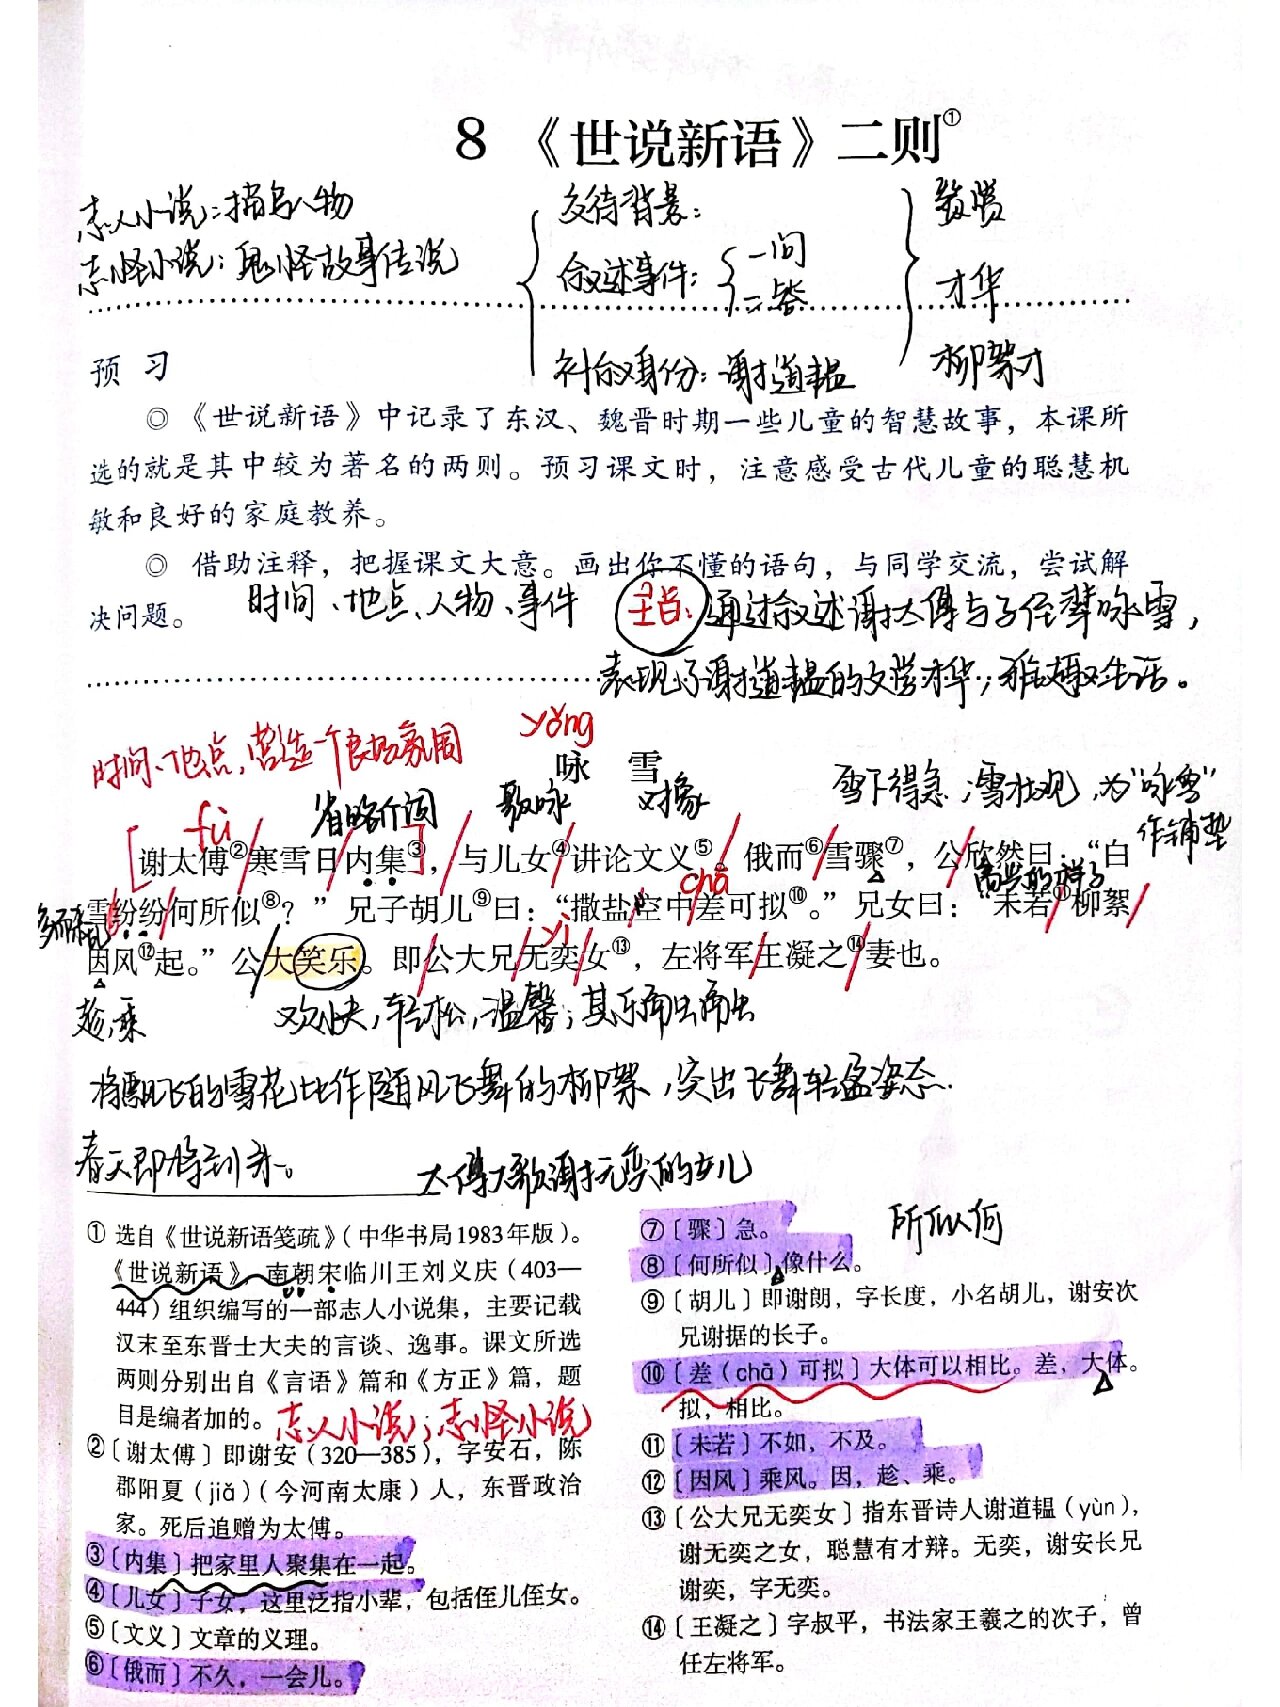 8 《世说新语》二则①
志人小说：描写人物
志怪小说：鬼怪故事传说
交待背景：
叙述事件：
一问
二答
补叙身份：谢道韫
赞赏
才华
柳絮才
预 习
◎ 《世说新语》中记录了东汉、魏晋时期一些儿童的智慧故事，本课所
选的就是其中较为著名的两则。预习课文时，注意感受古代儿童的聪慧机
敏和良好的家庭教养。
◎ 借助注释，把握课文大意。画出你不懂的语句，与同学交流，尝试解
决问题。
时间、地点、人物、事件
主旨：通过叙述谢太傅与子侄辈咏雪，
表现了谢道韫的文学才华，和家庭生活。
时间、地点，营造一个良好氛围
yǒng
咏 雪
省略介词
歌咏
对象
雪下得急，雪壮观，为“咏雪”
作铺垫
fù
谢太傅②寒雪日内集③，与儿女④讲论文义⑤。俄而⑥雪骤⑦，公欣然曰：“白
高兴的样子
chā
雪纷纷何所似⑧？”兄子胡儿⑨曰：“撒盐空中差可拟⑩。”兄女曰：“未若⑪柳絮
yì
因风⑫起。”公大笑乐。即公大兄无奕女⑬，左将军王凝之⑭妻也。
趁，乘
欢快，轻松，温馨；其乐融融
将飘飞的雪花比作随风飞舞的柳絮，突出飞舞轻盈姿态.
春天即将到来。
太傅大哥谢无奕的女儿
① 选自《世说新语笺疏》（中华书局1983年版）。
《世说新语》，南朝宋临川王刘义庆（403—
444）组织编写的一部志人小说集，主要记载
汉末至东晋士大夫的言谈、逸事。课文所选
两则分别出自《言语》篇和《方正》篇，题
目是编者加的。
志人小说；志怪小说
②〔谢太傅〕即谢安（320—385），字安石，陈
郡阳夏（jiǎ）（今河南太康）人，东晋政治
家。死后追赠为太傅。
③〔内集〕把家里人聚集在一起。
④〔儿女〕子女，这里泛指小辈，包括侄儿侄女。
⑤〔文义〕文章的义理。
⑥〔俄而〕不久，一会儿。
⑦〔骤〕急。
所似何
⑧〔何所似〕像什么。
⑨〔胡儿〕即谢朗，字长度，小名胡儿，谢安次
兄谢据的长子。
⑩〔差（chā）可拟〕大体可以相比。差，大体。
拟，相比。
⑪〔未若〕不如，不及。
⑫〔因风〕乘风。因，趁、乘。
⑬〔公大兄无奕女〕指东晋诗人谢道韫（yùn），
谢无奕之女，聪慧有才辩。无奕，谢安长兄
谢奕，字无奕。
⑭〔王凝之〕字叔平，书法家王羲之的次子，曾
任左将军。